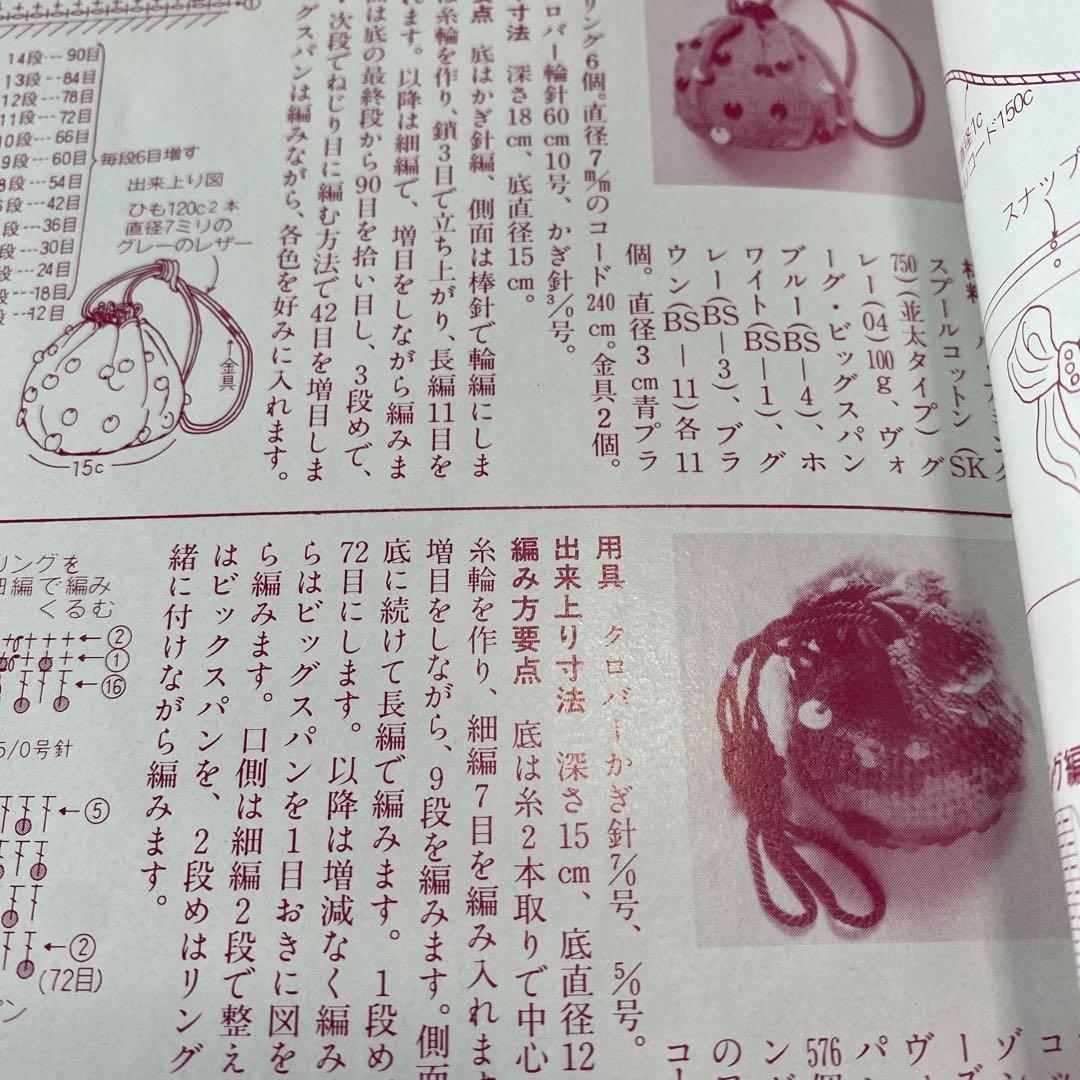 14段---90目
13段---84目
12段---78目
11段---72目
10段---66目
9段---60目
8段---54目
6段---42目
段---36目
段---30目
段---24目
段---18目
段---12目
毎段6目増す
出来上り図
ひも120c2本
直径7ミリの
グレーのレザー
金具
15c
スプールコットン(SK
750)(並太タイプ)グ
レー(04)100g、ヴォ
ーグ・ビッグスパン
ブルー(BS—4)、ホ
ワイト(BS—1)、グ
レー(BS—3)、ブラ
ウン(BS—11)各11
個。直径3cm青プラ
リング6個。直径7m/mのコード240cm。金具2個。
バー輪針60cm10号、かぎ針3/0号。
寸法 深さ18cm、底直径15cm。
点 底はかぎ針編、側面は棒針で輪編にしま
は糸輪を作り、鎖3目で立ち上がり、長編11目を
れます。以降は細編で、増目をしながら編みま
面は底の最終段から90目を拾い目し、3段めで、
次段でねじり目に編む方法で42目を増目しま
グスパンは編みながら、各色を好みに入れます。
コード150c
スナップ
用具 クロバーかぎ針7/0号、5/0号。
出来上り寸法 深さ15cm、底直径12
編み方要点 底は糸2本取りで中心
糸輪を作り、細編7目を編み入れま
増目をしながら、9段を編みます。側面
底に続けて長編で編みます。1段め
72目にします。以降は増減なく編み
らはビッグスパンを1目おきに図を
ら編みます。口側は細編2段で整え
はビックスパンを、2段めはリング
緒に付けながら編みます。
リングを
細編で編み
くるむ
②
①
⑯
5/0号針
⑤
②
(72目)
ン
576